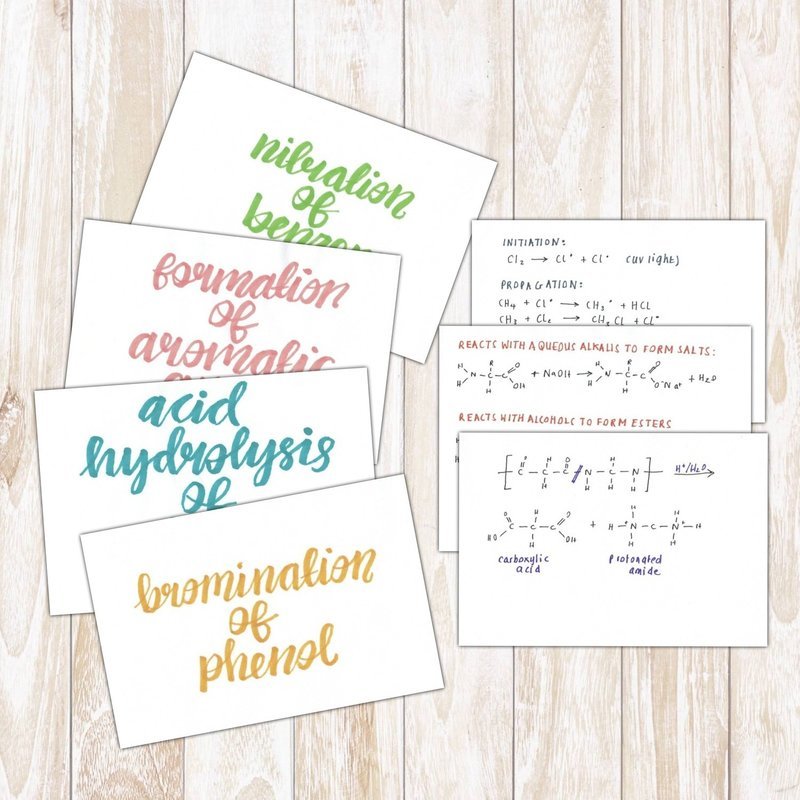 nitration
of
formation
of
aromatic
acid
hydrolysis
of
bromination
of
phenol
INITIATION:
Cl₂ → Cl• + Cl• (UV light)
PROPAGATION:
CH₄ + Cl• → CH₃• + HCl
CH₃ + Cl₂ → CH₃Cl + Cl•
REACTS WITH AQUEOUS ALKALIS TO FORM SALTS:
+ NaOH →
+ H₂O
REACTS WITH ALCOHOLS TO FORM ESTERS
H⁺/H₂O
carboxylic
acid
protonated
amide